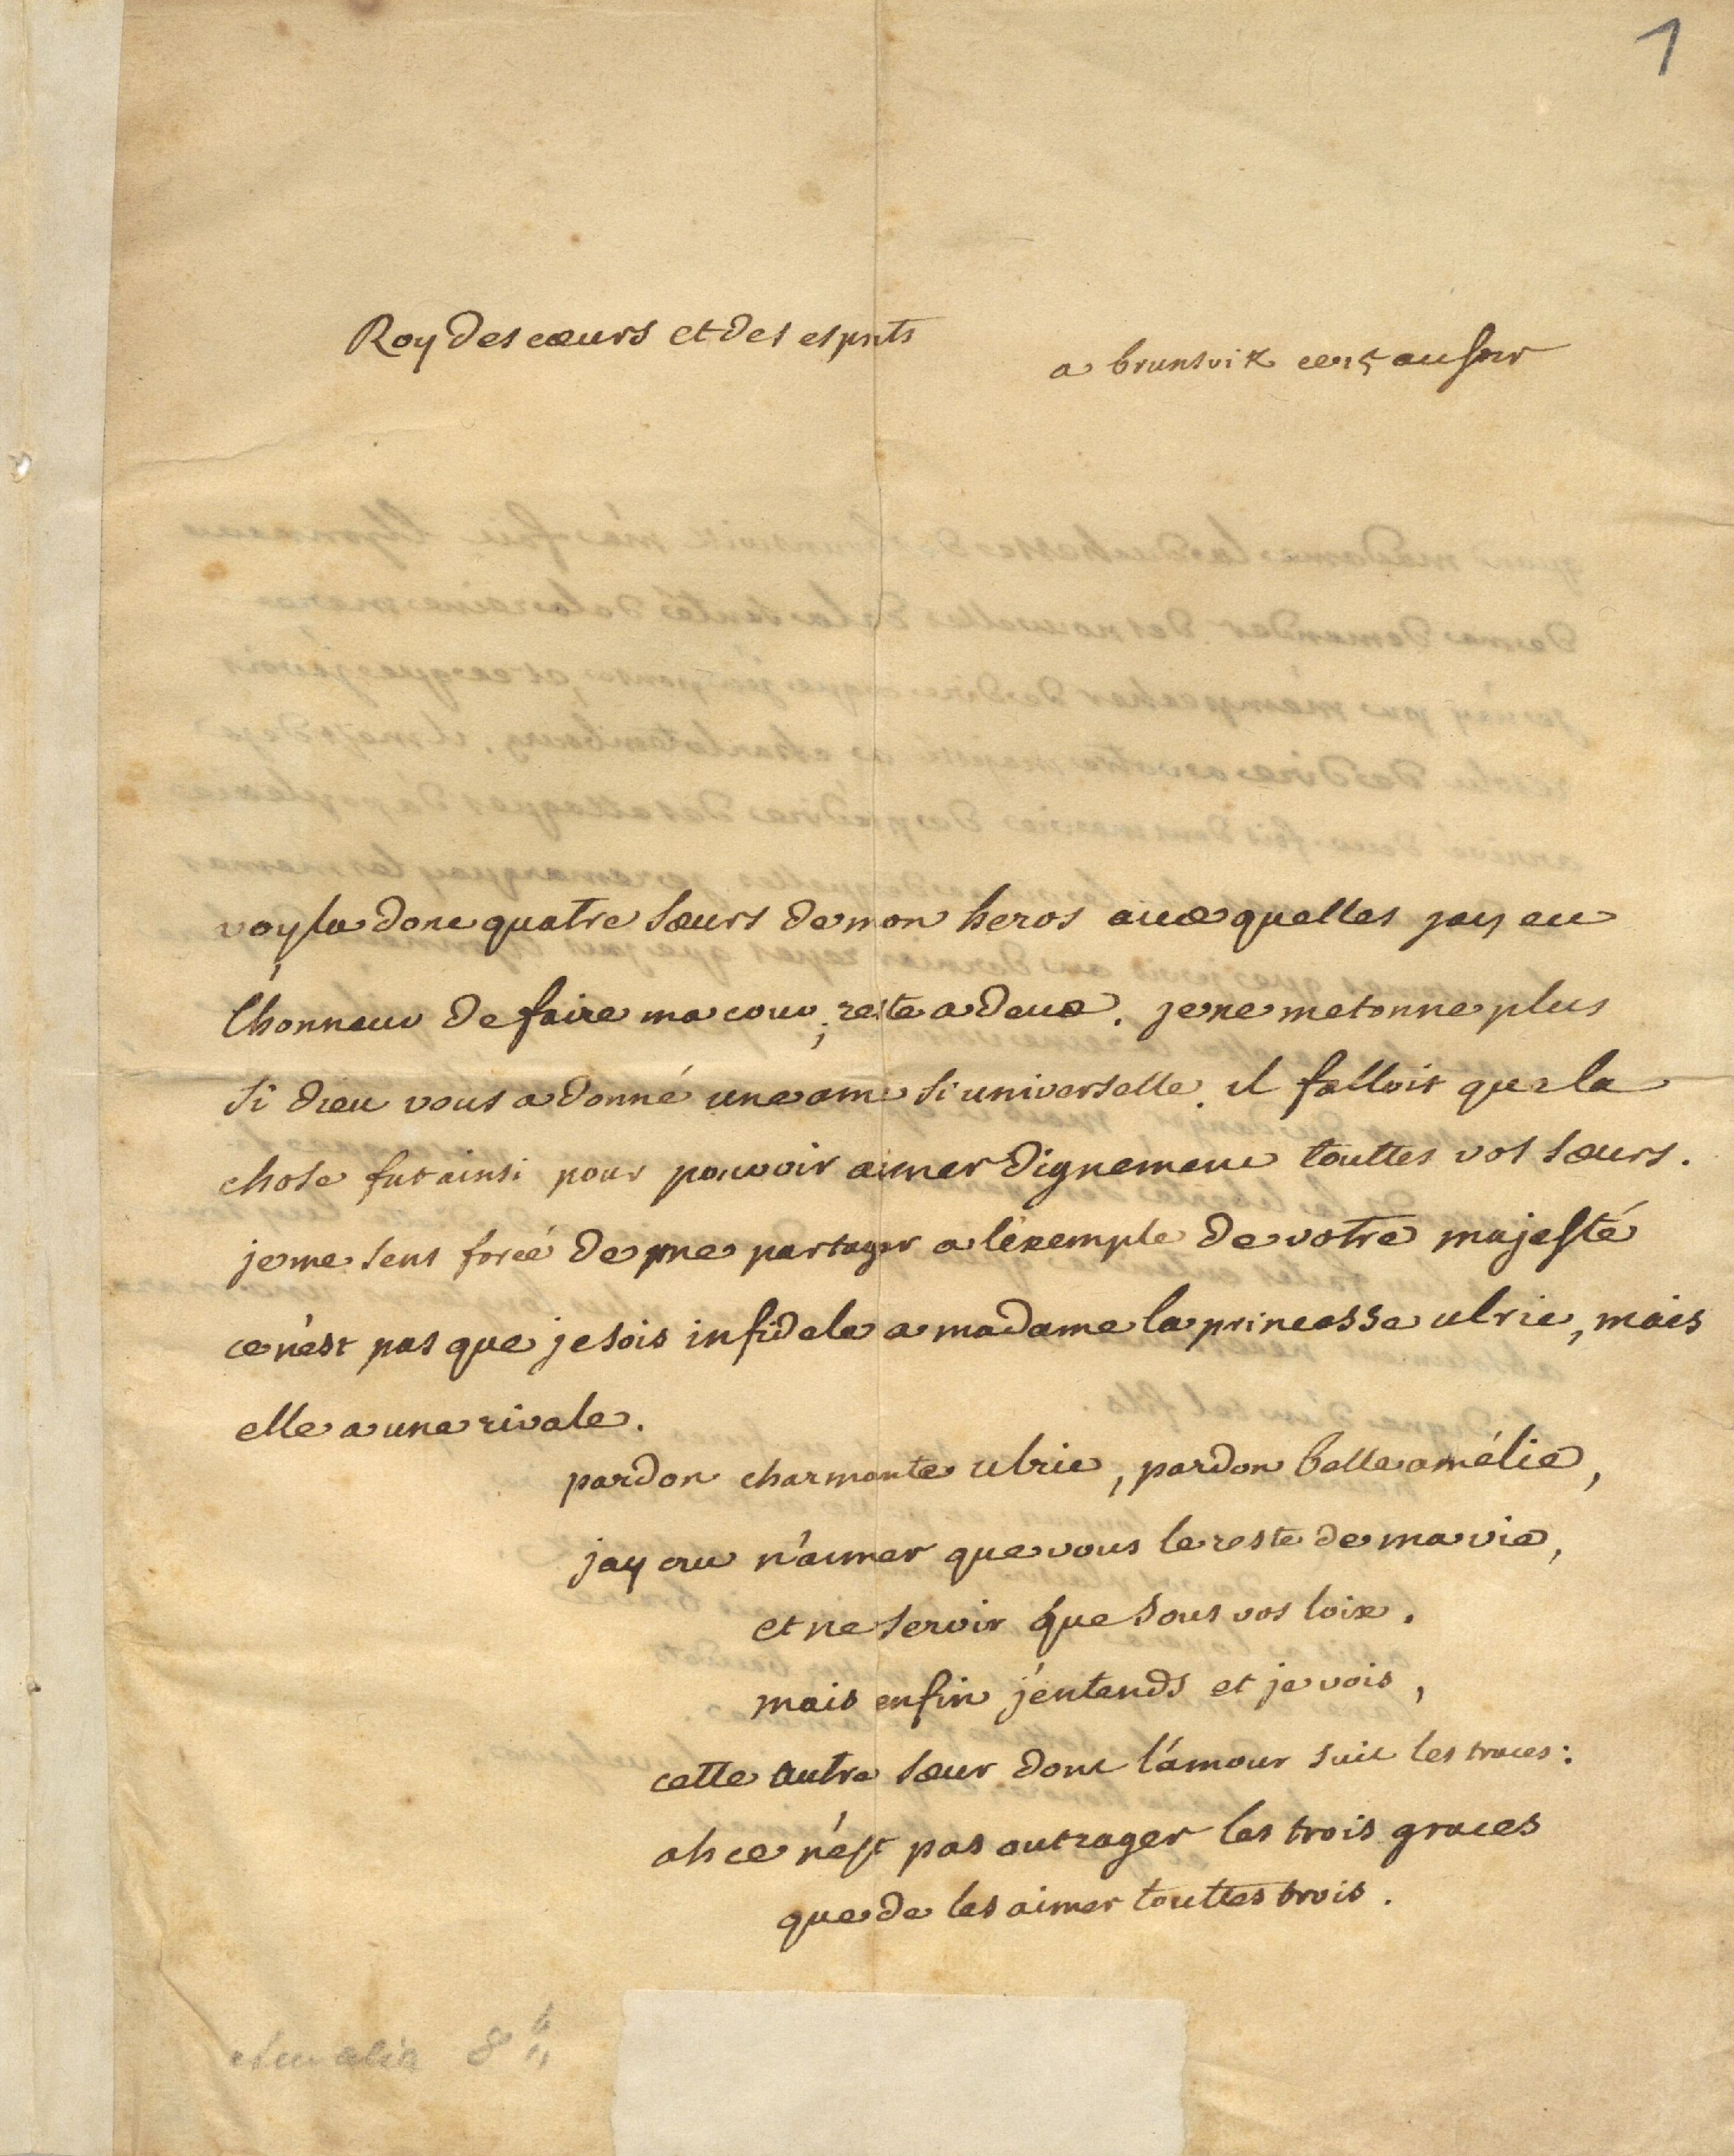 1
Roy des cœurs et des esprits
a brunsvik ce 15 au soir
voyla donc quatre sœurs de mon heros auxquelles jay eu
l'honneur de faire ma cour, reste a deux. je ne metonne plus
si dieu vous a donné une ame si universelle. il falloit que la
chose fut ainsi pour pouvoir aimer dignement touttes vos sœurs.
je me sens forcé de me partager a l'éxemple de votre majesté
ce n'est pas que je sois infidele a madame la princesse ulric, mais
elle a une rivale.
pardon charmante ulric, pardon belle amélie,
jay cru n'aimer que vous le reste de ma vie,
et ne servir que sous vos loix.
mais enfin j'entends et je vois,
cette autre sœur dont l'amour suit les traces:
ah ce n'est pas outrager les trois graces
que de les aimer touttes trois.